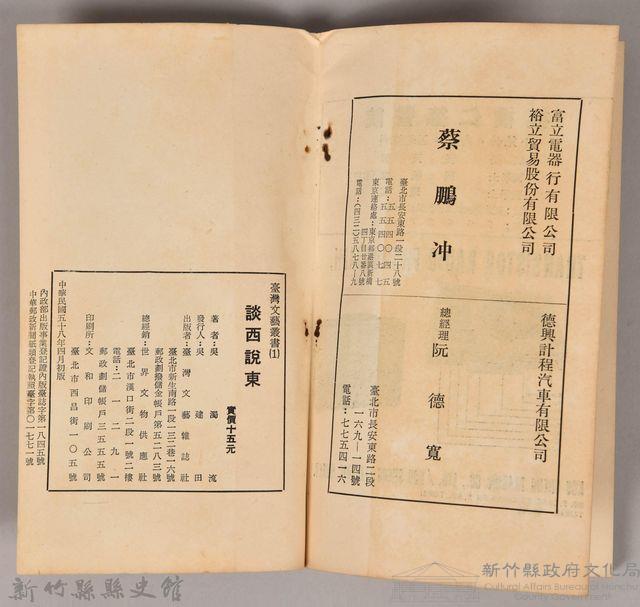 富立電器行有限公司
裕立貿易股份有限公司
蔡鵬冲
臺北市長安東路一段二十八號
電話:五五四〇四五
五五四〇七七
東京連絡處:東京都港區新橋
四丁目廿番八號
電話:(四三二)五八七八-九
德興計程汽車有限公司
總經理 阮德寬
臺北市長安東路二段
一六九-一四號
電話:七七五四一六
臺灣文藝叢書(1)
談西說東
實價十五元
著者:吳濁流
發行人:吳建田
出版者:臺灣文藝雜誌社
臺北市新生南路一段一三二巷一六號
郵政劃撥儲金帳戶第五二八三號
總經銷:世界文物供應社
臺北市漢口街二段一號二樓
電話:二一二九九一
郵政劃儲帳戶三五五五號
印刷所:文和印刷公司
臺北市西昌街一〇五號
中華民國五十八年四月初版
內政部出版事業登記證內版臺誌字第一八四五號
中華郵政新聞紙類登記執照臺字第〇一七七一號
新竹縣縣史館
新竹縣政府文化局
Cultural Affairs Bureau of Hsinchu
County Government